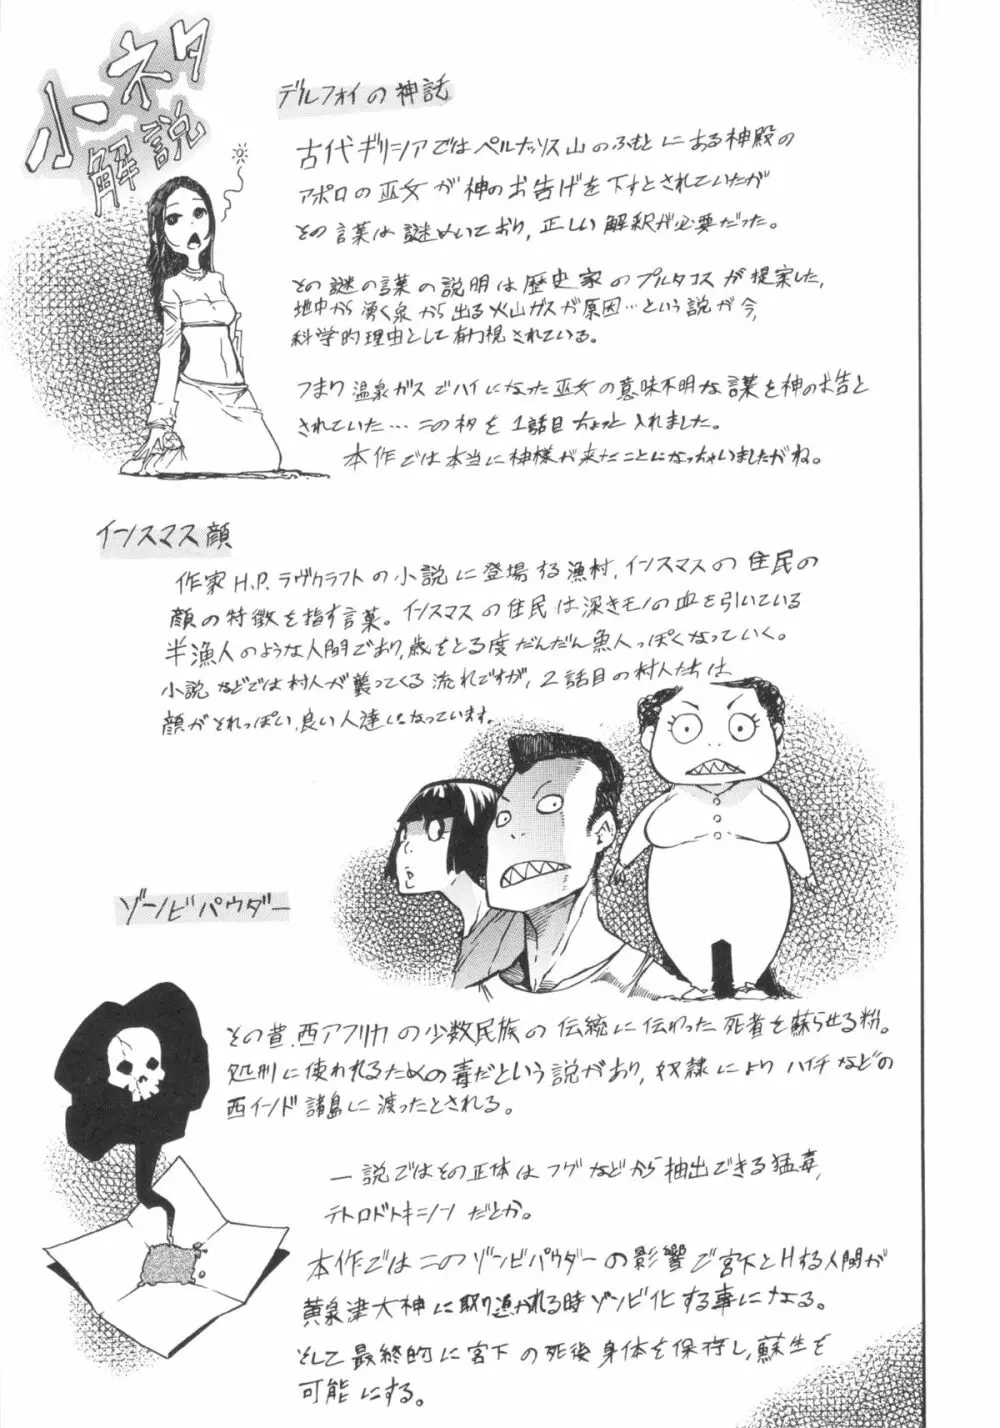 小ネタ
解説
デルフォイの神託
古代ギリシアではペルナッソス山のふもとにある神殿の
アポロの巫女が神のお告げを下すとされていたが
その言葉は謎めいており、正しい解釈が必要だった。
その謎の言葉の説明は歴史家のプルタコスが提案した、
地中から湧く泉から出る火山ガスが原因…という説が今、
科学的理由として有力視されている。
つまり温泉ガスでハイになった巫女の意味不明な言葉を神のお告と
されていた…このネタを1話目ちょっと入れました。
本作では本当に神様が来たことになっちゃいましたがね。
インスマス顔
作家H.P.ラヴクラフトの小説に登場する漁村、インスマスの住民の
顔の特徴を指す言葉。インスマスの住民は深きモノの血を引いている
半漁人のような人間であり、歳をとる度だんだん魚人っぽくなっていく。
小説などでは村人が襲ってくる流れですが、2話目の村人たちは
顔がそれっぽい、良い人達になっています。
ゾンビパウダー
その昔、西アフリカの少数民族の伝統に伝わった死者を蘇らせる粉。
処刑に使われるための毒だという説があり、奴隷によりハイチなどの
西インド諸島に渡ったとされる。
一説ではその正体はフグなどから抽出できる猛毒、
テトロドトキシン だとか。
本作ではこのゾンビパウダーの影響で宮下とHする人間が
黄泉津大神に取り憑かれる時ゾンビ化する事になる。
そして最終的に宮下の死後身体を保存し、蘇生を
可能にする。